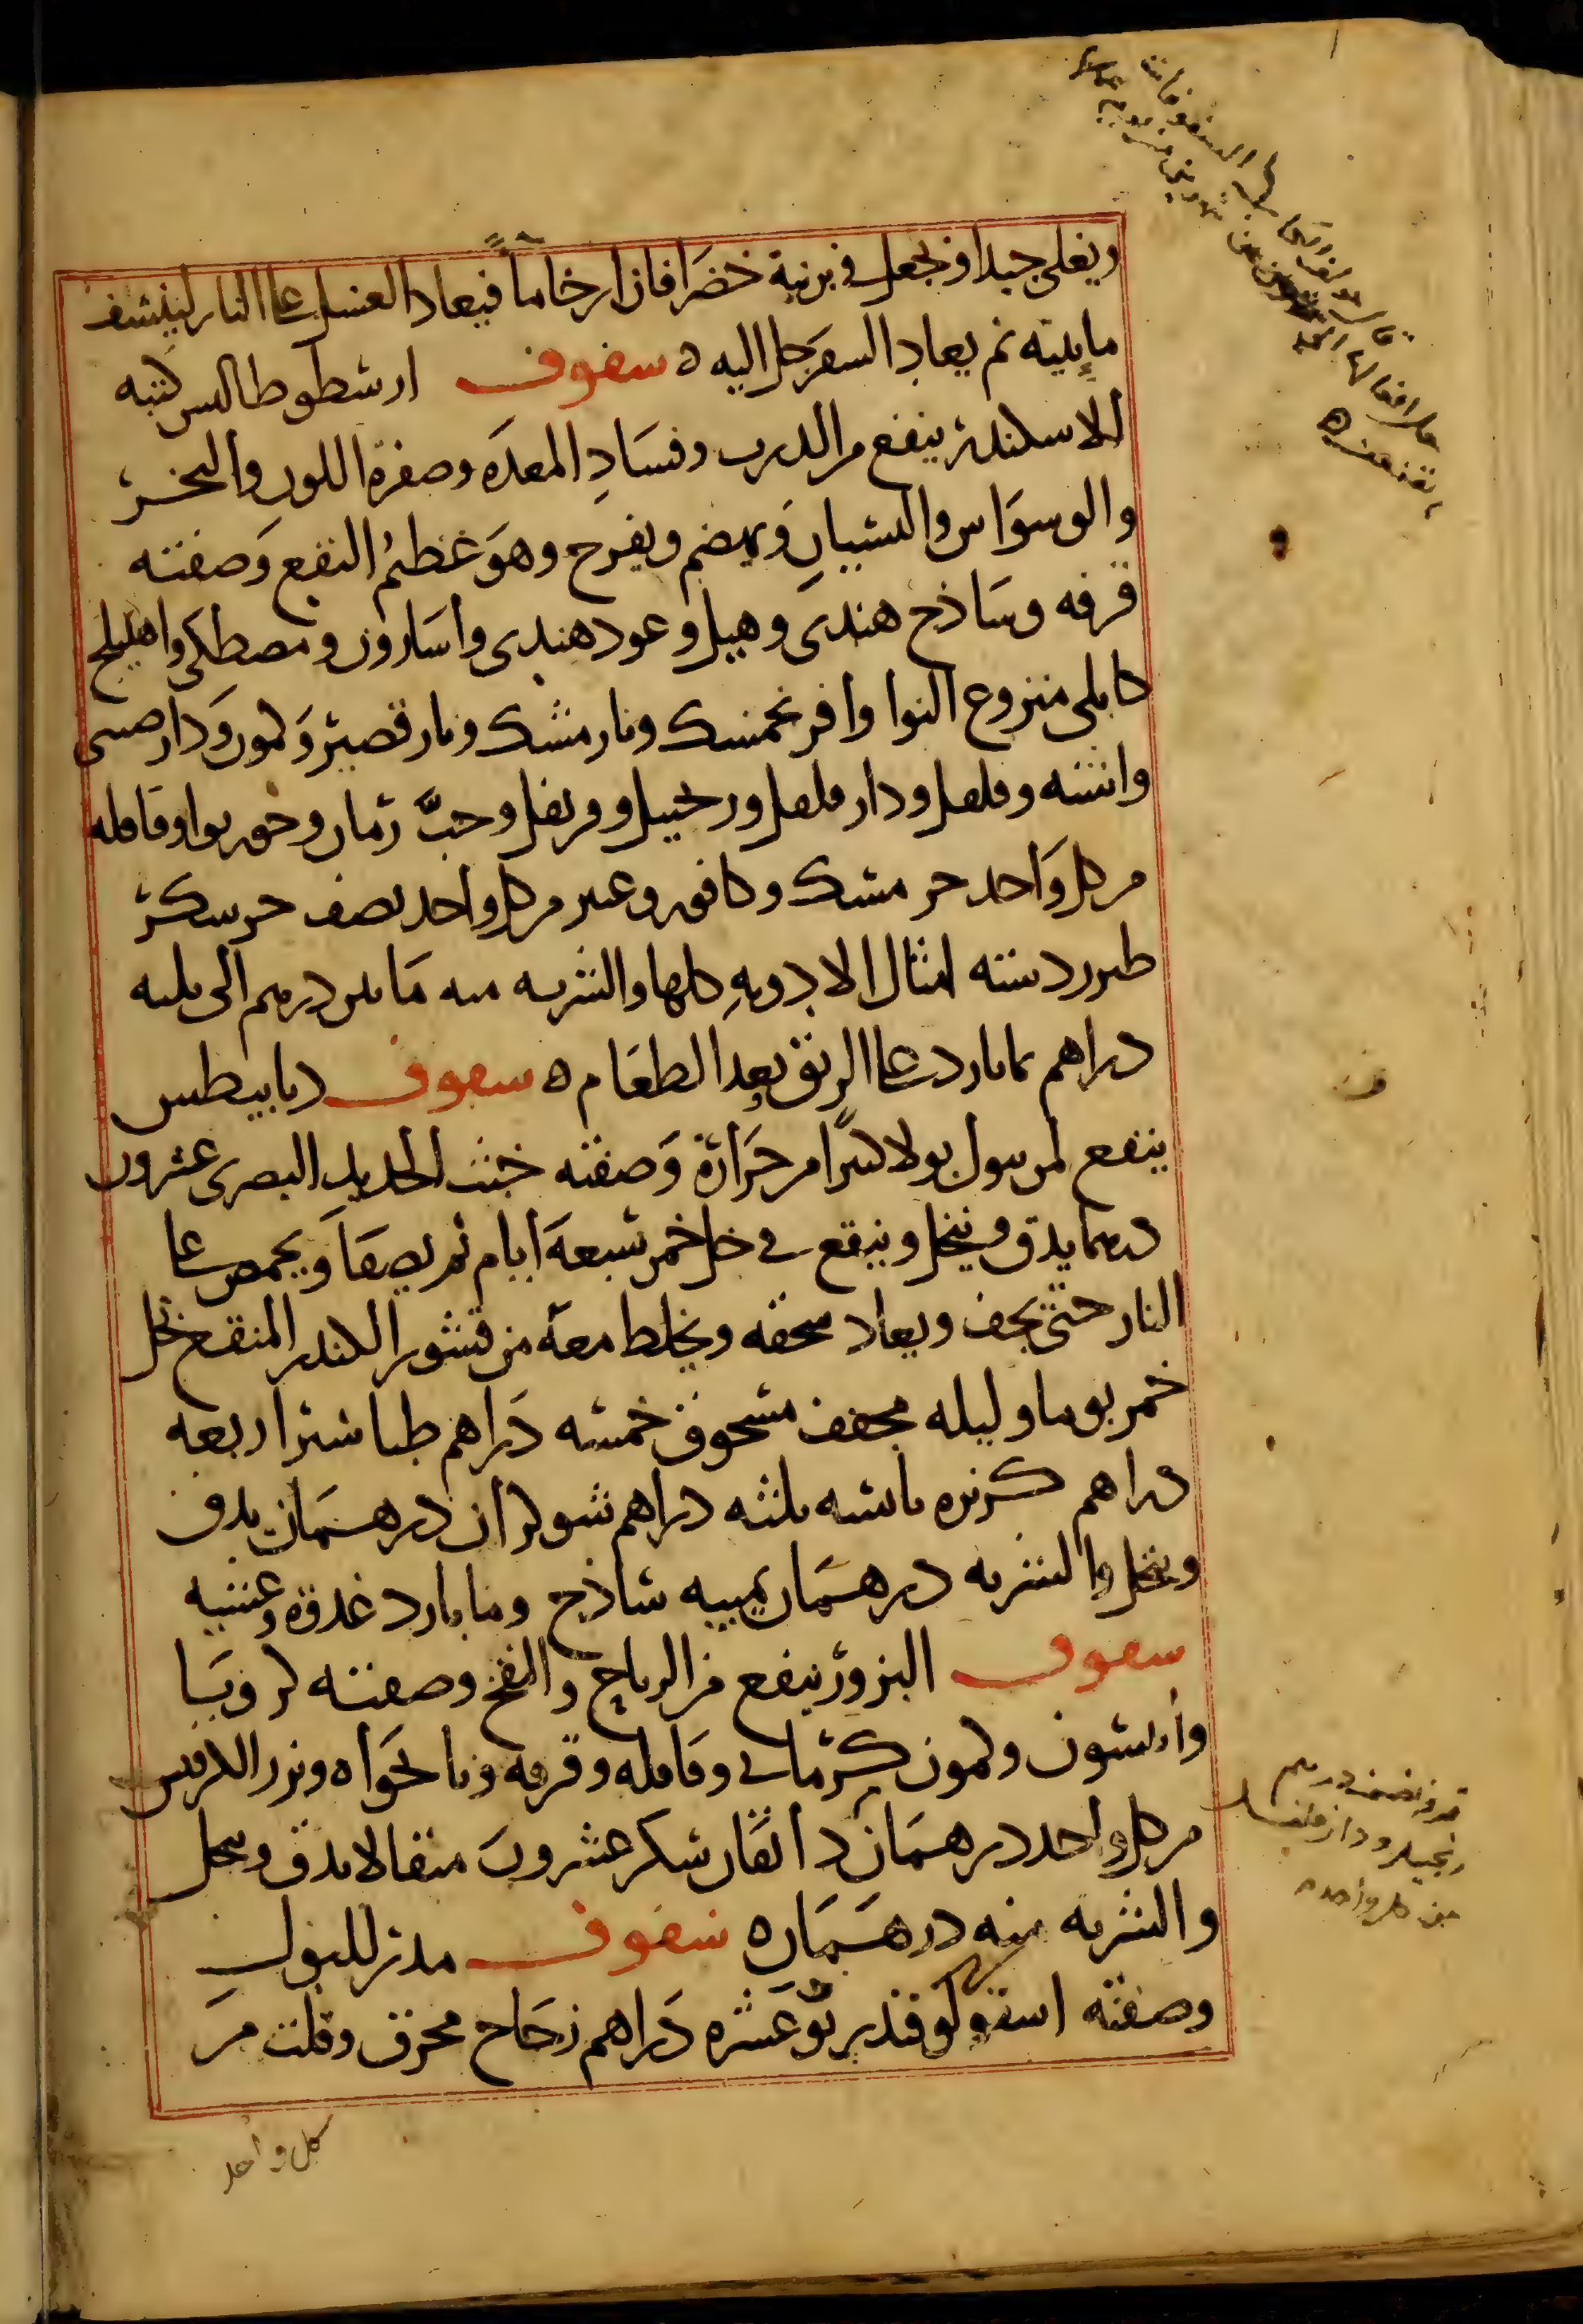 ويغلى جيدا ويجعل في برنية خضرا فان ارخا ماً فيعاد العسل على النار لينشف
مائيته ثم يعاد السفرجل اليه ه سفوف ارسطوطاليس كتبه
للاسكندر ينفع من الدرب وفساد المعده وصفرة اللون والبخر
والوسواس والنسيان ويهضم ويفرح وهو عظيم النفع وصفته
قرفه وساذج هندى وهيل وعود هندى واسارون ومصطكى واهليلج
كابلى منزوع النوا وافرنجمسك ونارمشك ونارقصير وكمون ودارصينى
واشنه وفلفل ودار فلفل وزنجبيل وقرنفل وحب رمان وجوزبوا وقاقله
من كل واحد جز مسك وكافور وعنبر من كل واحد نصف جز سكر
طبرزد ستة امثال الادويه كلها والشربه منه مابين درهم الى ثلثه
دراهم بماء بارد على الريق بعد الطعام ه سفوف ديابيطس
ينفع لمن يبول بولا كثيرا من حرارة وصفته خبث الحديد البصرى عشرون
درهما يدق وينخل وينقع في خل خمر سبعة ايام ثم يصفا ويحمص على
النار حتى يجف ويعاد سحقه ويخلط معه من قشور الكندر المنقع بخل
خمر يوما وليله مجفف مسحوق خمسه دراهم طباشير اربعه
دراهم كزبره يابسه ثلثه دراهم شوكران درهمان يدق
وينخل والشربه درهمان بميبه ساذج وما بارد غدوة وعشيه
سفوف البزور ينفع من الرياح والنفخ وصفته كرويا
وانيسون وكمون كرمانى وقاقله وقرفه ونانخواه وبزر الكرفس
من كل واحد درهمان دانقان سكر عشرون مثقالا يدق وينخل
والشربه منه درهمان ه سفوف مدر للبول
وصفته اسقولوقندريو عشره دراهم زجاج محرق وقلت من
كل واحد
قرفه نصف درهم
زنجبيل ودار فلفل
من كل واحد